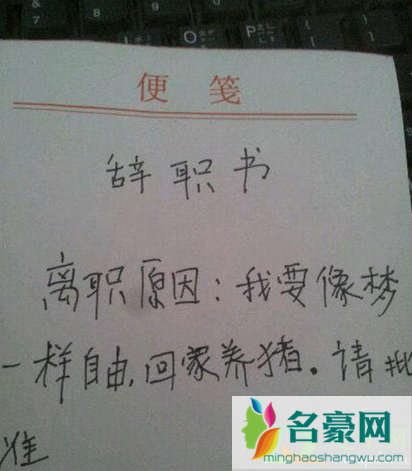 & 7 * 8 ( 9 ) 0
I O P {
便笺
辞职书
离职原因：我要像梦
一样自由，回家养猪。请批
准
名豪网
minghaoshangwu.com